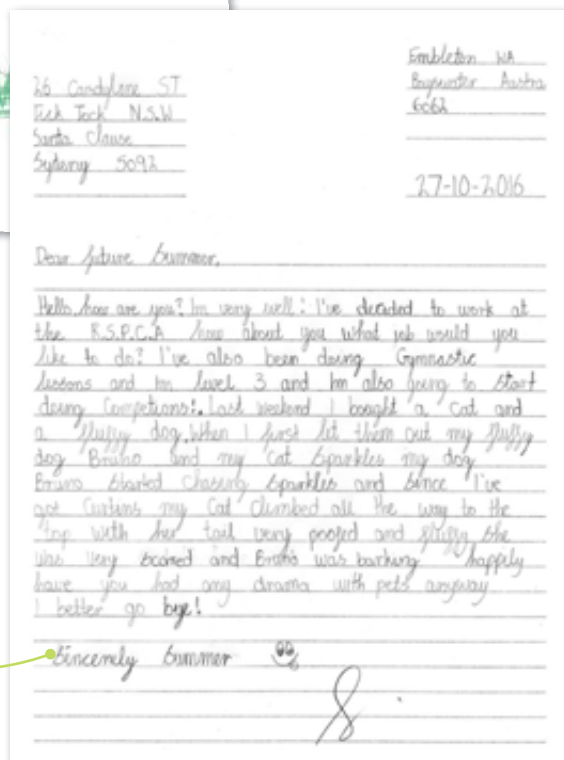 26 Candylane ST
Tick Tock N.S.W
Santa Clause
Syteny 5092
Embleton WA
Bayswater Austra
6062
27-10-2016
Dear future Summer,
Hello, how are you? Im very well! I've decided to work at
the R.S.P.C.A how about you what job would you
like to do? I've also been doing Gymnastic
lessons and Im level 3 and Im also going to start
doing Competions!. Last weekend I bought a Cat and
a fluffy dog. When I first let them out my fluffy
dog Bruno and my Cat Sparkles my dog
Bruno started chasing Sparkles and Since I've
got Curtins my Cat Climbed all the way to the
top with her tail very poofed and fluffy She
was very scared and Bruno was barking happily
have you had any drama with pets anyway
I better go bye!
Sincerely Summer
S